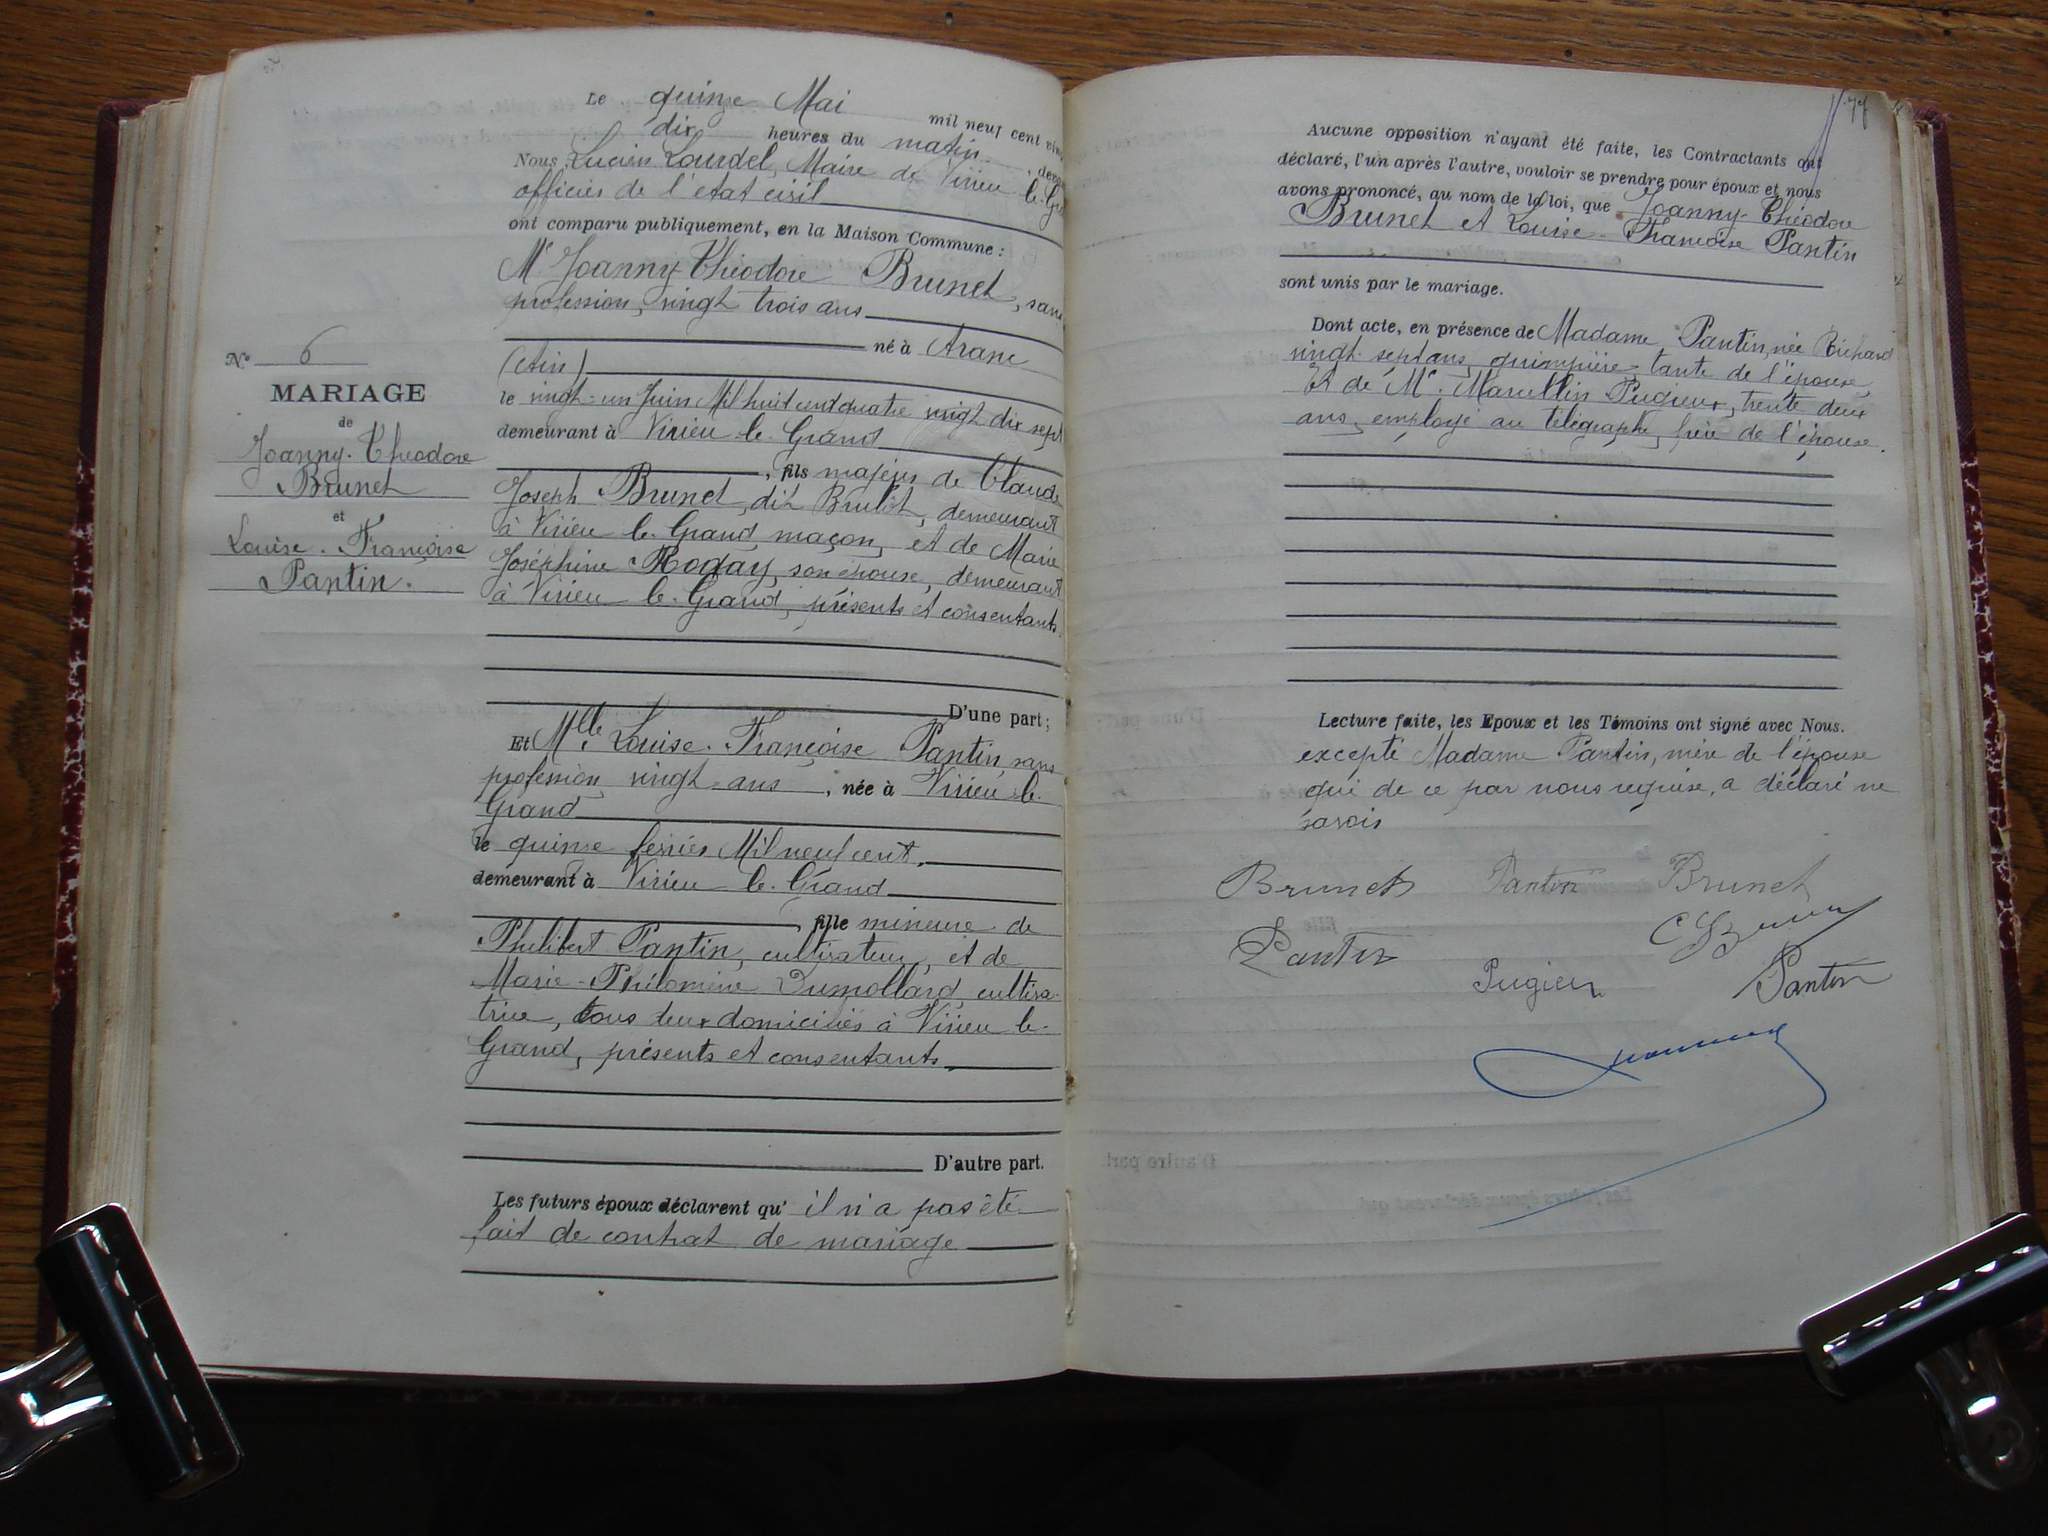 Le quinze Mai mil neuf cent
dix heures du matin
Nous, Lucien Lourdel, Maire de Virieu le Gr
officier de l'état civil
ont comparu publiquement, en la Maison Commune :
Mr Joanny-Théodore Brunet, sans
profession, vingt trois ans
né à Aranc
(Ain)
le vingt-un Juin Mil huit cent quatre vingt dix sept
demeurant à Virieu le Grand
, fils majeur de Claude
Joseph Brunet, dit Brulet, demeurant
à Virieu le Grand, maçon, et de Marie
Joséphine Roday, son épouse, demeurant
à Virieu le Grand, présents et consentants.
D'une part ;
Et Mlle Louise-Françoise Pantin, sans
profession, vingt ans, née à Virieu-le-
Grand
le quinze février Mil neuf cent,
demeurant à Virieu le Grand
, fille mineure de
Philibert Pantin, cultivateur, et de
Marie-Philomène Dumollard, cultiva-
trice, tous deux domiciliés à Virieu le-
Grand, présents et consentants
D'autre part.
Les futurs époux déclarent qu'il n'a pas été
fait de contrat de mariage
No 6
MARIAGE
de
Joanny-Théodore
Brunet
et
Louise-Françoise
Pantin.
77
Aucune opposition n'ayant été faite, les Contractants ont
déclaré, l'un après l'autre, vouloir se prendre pour époux et nous
avons prononcé, au nom de la loi, que Joanny-Théodore
Brunet et Louise-Françoise Pantin
sont unis par le mariage.
Dont acte, en présence de Madame Pantin, née Richard
vingt-sept ans, guimpière, tante de l'épouse,
Et de Mr. Marcellin Pugieux, trente deux
ans, employé au télégraphe, frère de l'épouse.
Lecture faite, les Epoux et les Témoins ont signé avec Nous.
excepté Madame Pantin, mère de l'épouse
qui de ce par nous requise, a déclaré ne
savoir
Brunet Pantin Brunet
Pantin
Pugieux Pantin